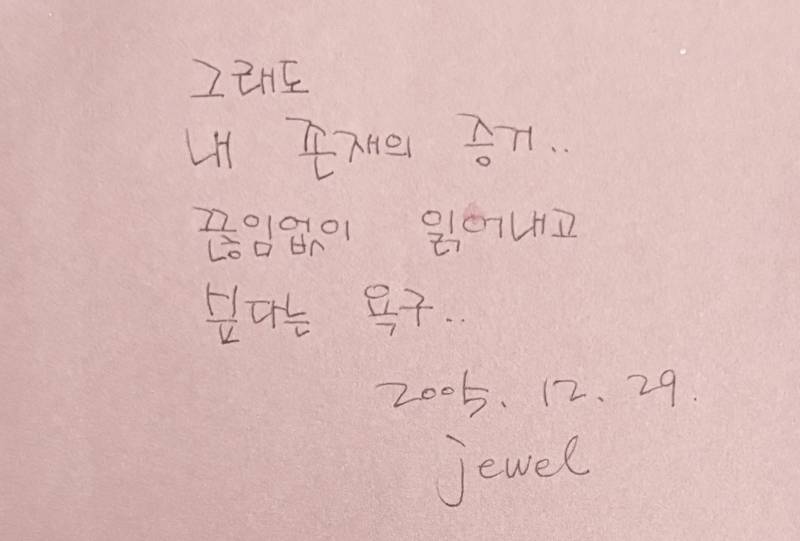 그래도
내 존재의 증거..
끊임없이 읽어내고
싶다는 욕구..
2005. 12. 29.
jewel